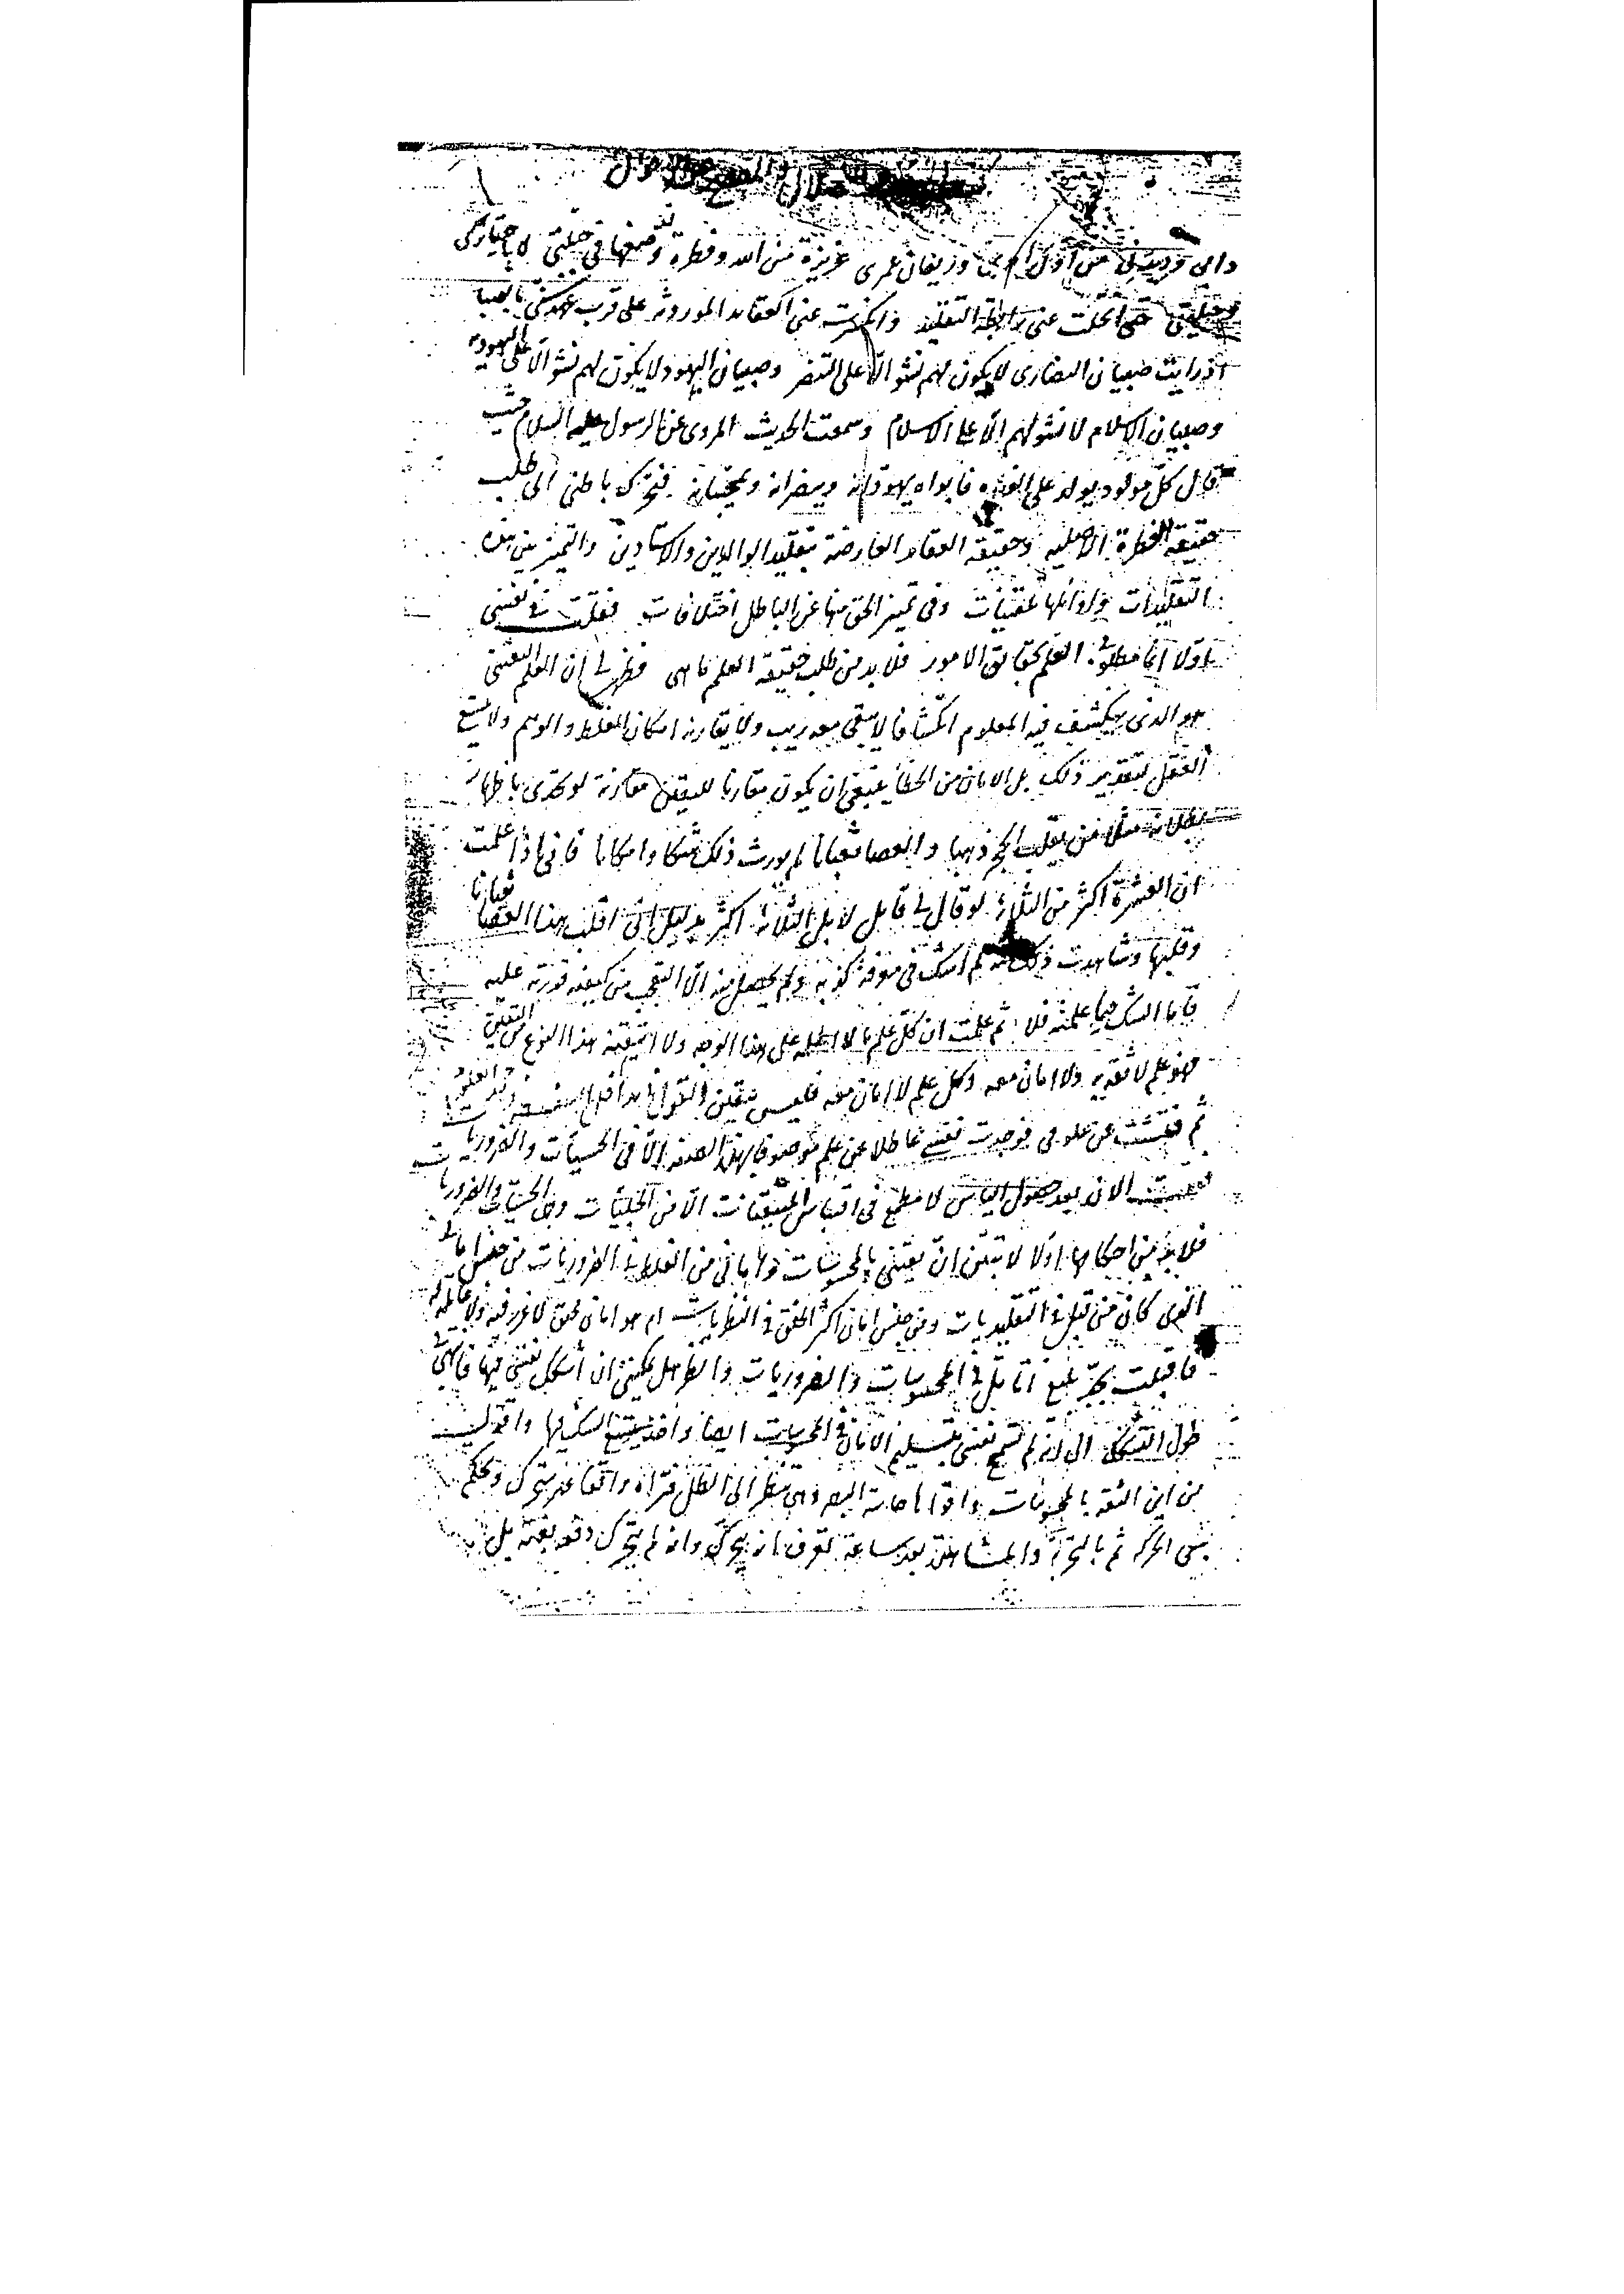 المنقذ من الضلال والمفصح عن الأحوال
دابى وديدنى من اول امرى وريعان عمرى غريزة من الله وفطرة وضعها فى جبلتى لا باختيارى
وحيلتى حتى انحلت عنى رابطة التقليد وانكسرت عنى العقايد الموروثة على قرب عهد سنى بالصبا
اذ رايت صبيان النصارى لا يكون لهم نشو الا على التنصر وصبيان اليهود لا يكون لهم نشو الا على اليهودية
وصبيان الاسلام لا نشو لهم الا على الاسلام وسمعت الحديث المروى عن الرسول عليه السلام حيث
قال كل مولود يولد على الفطرة فابواه يهودانه وينصرانه ويمجسانه فتحرك باطنى الى طلب
حقيقة الفطرة الاصلية وحقيقة العقايد العارضة بتقليد الوالدين والاستادين والتمييز بين هذه
التقليدات واوائلها تلقينات وفى تمييز الحق منها عن الباطل اختلافات فقلت فى نفسى
اولا انما مطلوبى العلم بحقايق الامور فلا بد من طلب حقيقة العلم ما هى فظهر لى ان العلم اليقينى
هو الذى ينكشف فيه المعلوم انكشافا لا يبقى معه ريب ولا يقارنه امكان الغلط والوهم ولا يتسع
العقل لتقدير ذلك بل الامان من الخطأ ينبغى ان يكون مقارنا لليقين مقارنة لو تحدى باظهار
بطلانه مثلا من يقلب الحجر ذهبا والعصا ثعبانا لم يورث ذلك شكا وامكانا فانى اذا علمت
ان العشرة اكثر من الثلاثة لو قال لى قايل لا بل الثلاثة اكثر بدليل انى اقلب هذا العصا ثعبانا
وقلبها وشاهدت ذلك منه لم اشك فى معرفة كذبه ولم يحصل منه الا التعجب من كيفية قدرته عليه
فاما الشك فيما علمته فلا ثم علمت ان كل علم ما لا اعلمه على هذا الوجه ولا اتيقنه هذا النوع من اليقين
فهو علم لا ثقة به ولا امان معه وكل علم لا امان معه فليس بيقين القول فى مداخل السفسطة وجحد العلوم
ثم فتشت عن علومى فوجدت نفسى عاطلا عن علم موصوف بهذه الصفة الا فى الحسيات والضروريات
فقلت الان بعد حصول الياس لا مطمع فى اقتباس المتيقنات الا من الجليات وهى الحسيات والضروريات
فلا بد من احكامها اولا لاتبين ان يقينى بالمحسوسات وامانى من الغلط فى الضروريات من جنس امانى
الذى كان من قبل فى التقليديات ومن جنس امان اكثر الخلق فى النظريات ام هو امان محقق لا غرر فيه ولا غايلة له
فاقبلت بجد بليغ اتامل فى المحسوسات والضروريات وانظر هل يمكننى ان اشكك نفسى فيها فانتهى
طول التشكك الى انه لم تسمح نفسى بتسليم الامان فى المحسوسات ايضا واخذ يتسع الشك فيها واقول
من اين الثقة بالمحسوسات واقواها حاسة البصر وهى تنظر الى الظل فتراه واقفا غير متحرك وتحكم
بنفى الحركة ثم بالتجربة والمشاهدة بعد ساعة تعرف انه يتحرك وانه لم يتحرك دفعة بغتة بل